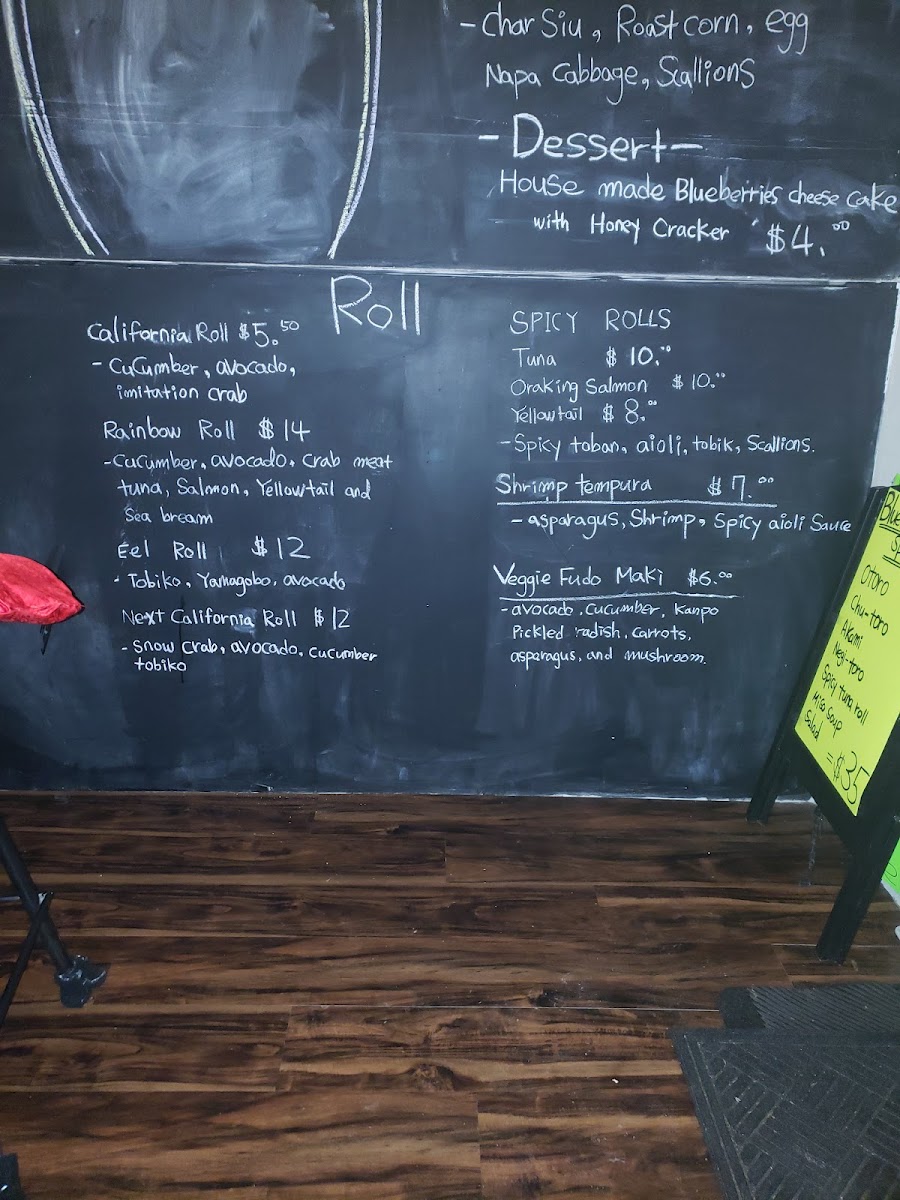 - Char Siu, Roast corn, egg
Napa Cabbage, Scallions
- Dessert -
House made Blueberries cheese cake
with Honey Cracker $4.00
Roll
California Roll $5.50
- Cucumber, avocado,
imitation crab
Rainbow Roll $14
- Cucumber, avocado, Crab meat
tuna, Salmon, Yellowtail and
Sea bream
Eel Roll $12
- Tobiko, Yamagobo, avocado
Next California Roll $12
- Snow Crab, avocado, cucumber
tobiko
SPICY ROLLS
Tuna $10.00
Oraking Salmon $10.00
Yellowtail $8.00
- Spicy toban, aioli, tobik, Scallions.
Shrimp tempura $7.00
- asparagus, Shrimp, Spicy aioli Sauce
Veggie Fudo Maki $6.00
- avocado, cucumber, kanpo
Pickled radish, carrots,
asparagus, and mushroom.
Otoro
Chu-toro
Akami
Negi-toro
Spicy tuna roll
Miso Soup
Salad
= $35